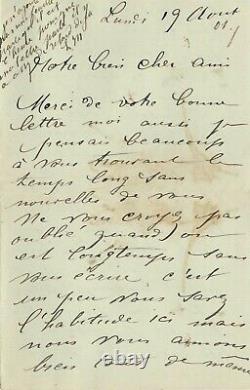 Lundi 19 Aout
01
Notre bien cher ami
Merci de votre bonne
lettre moi aussi je
pensais beaucoup
à vous trouvant le
temps long sans
nouvelles de vous
Ne vous croyez pas
oublié quand on
est longtemps sans
vous écrire c'est
un peu vous savez
l'habitude ici mais
nous vous aimons
bien tous de même